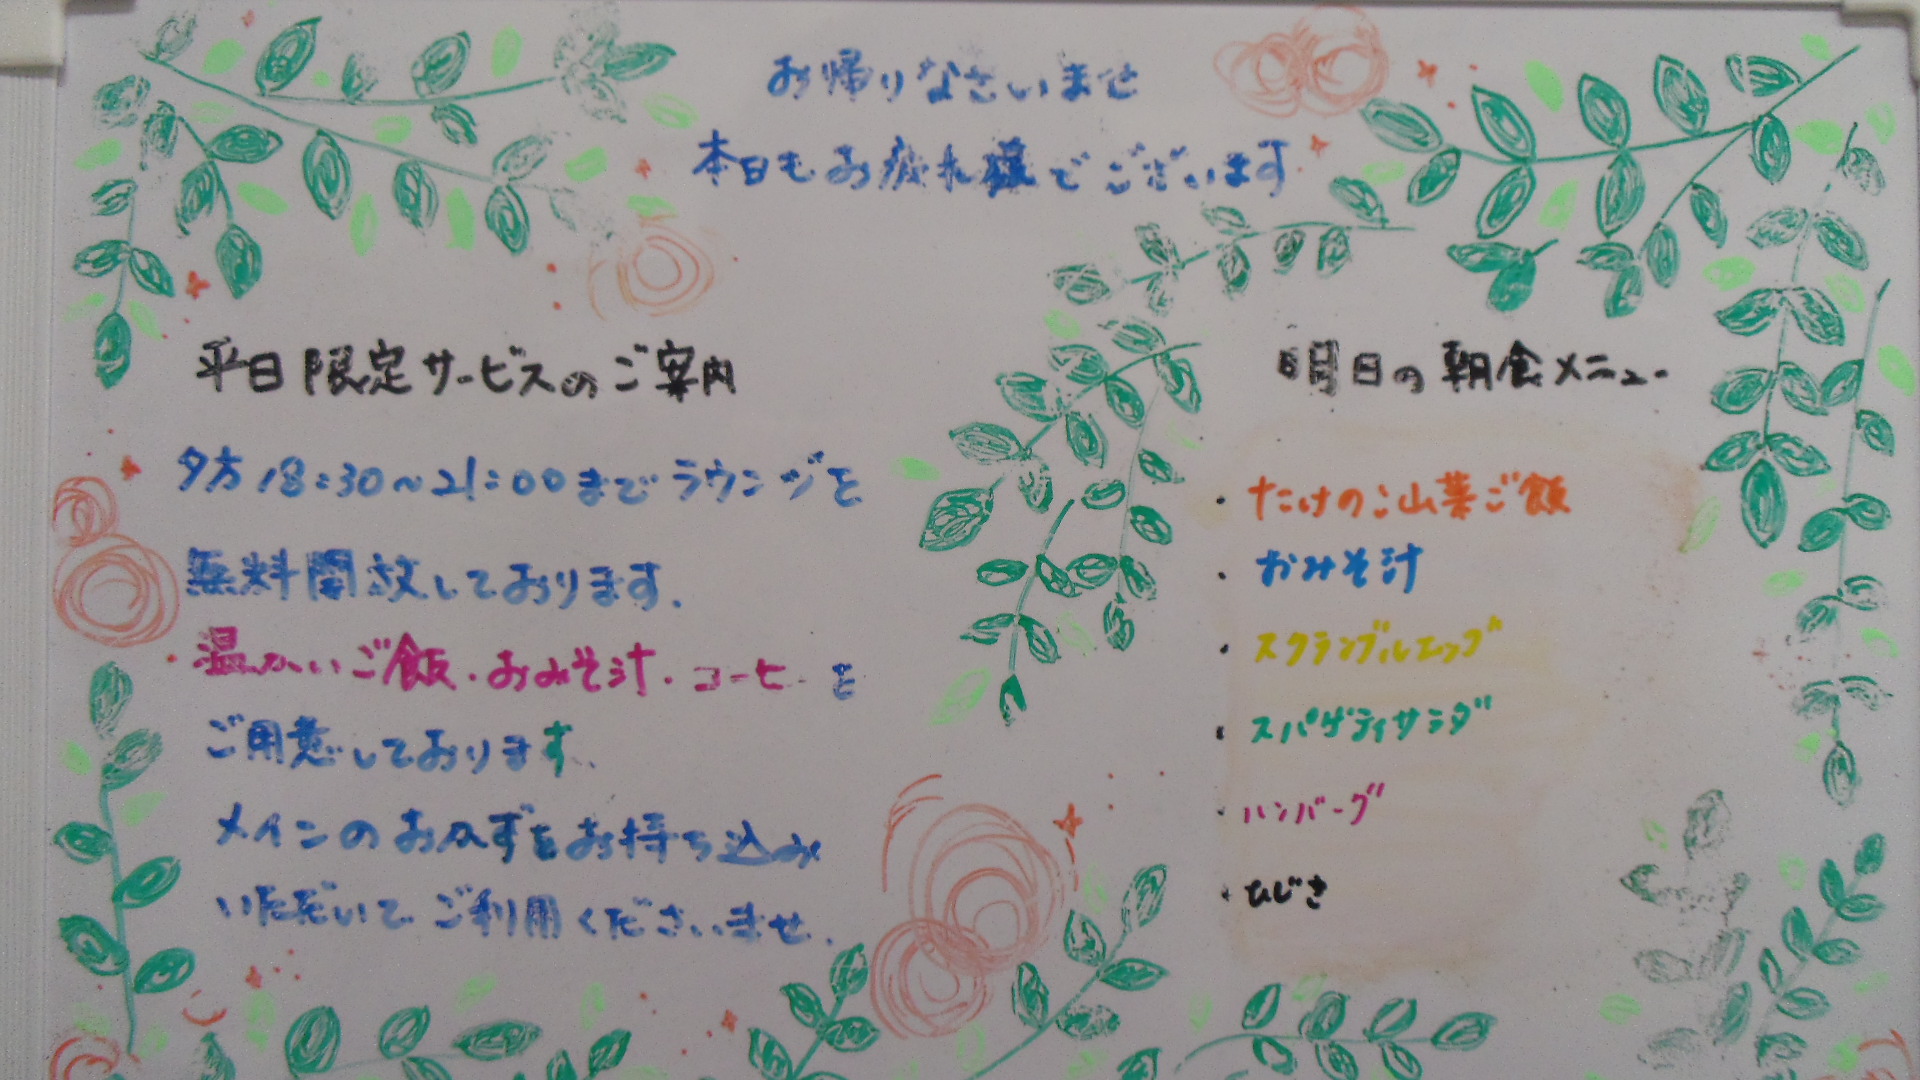 お帰りなさいませ
本日もお疲れ様でございます
平日限定サービスのご案内
夕方18:30～21:00までラウンジを
無料開放しております.
温かいご飯・おみそ汁・コーヒーを
ご用意しております.
メインのおかずをお持ち込み
いただいてご利用くださいませ.
明日の朝食メニュー
・たけのこ山菜ご飯
・おみそ汁
・スクランブルエッグ
・スパゲティサラダ
・ハンバーグ
・ひじき